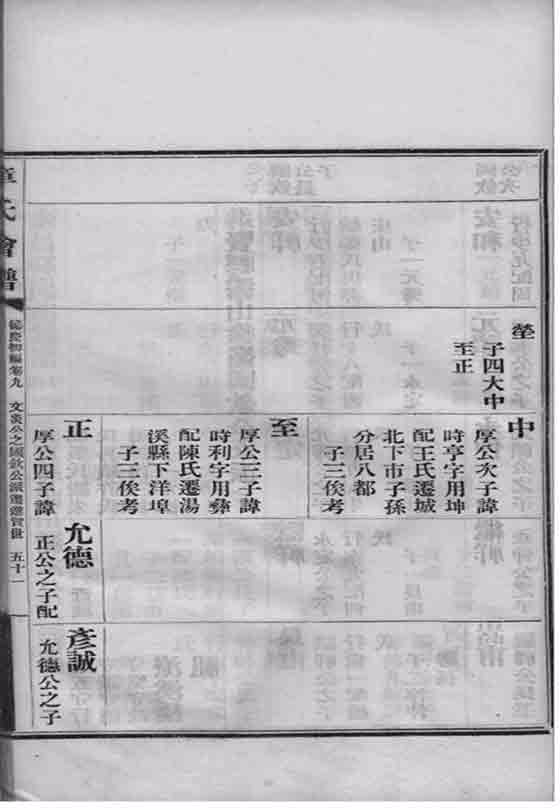 子四大中
至正
中
厚公次子諱
時亨字用坤
配王氏遷城
北下市子孫
分居八都
子三俟考
至
厚公三子諱
時利字用彝
配陳氏遷湯
溪縣下洋埠
子三俟考
正
厚公四子諱
允德
正公之子配
彥誠
允德公之子
章氏會譜
德慶初編卷九
公之國欽公派遷 世 五十一